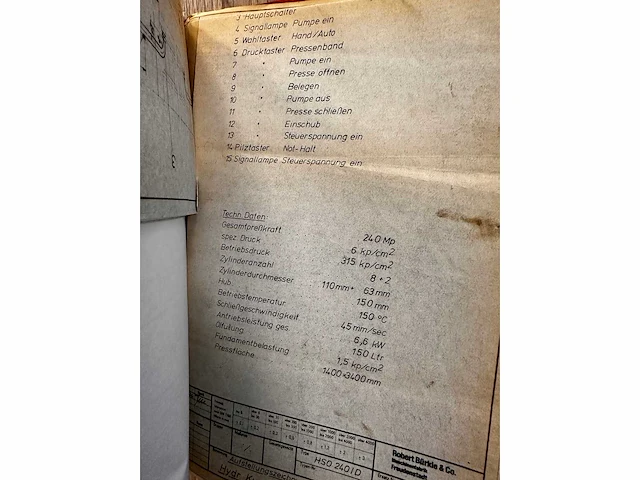 3 Hauptschalter
4 Signallampe Pumpe ein
5 Wahltaster Hand/Auto
6 Drucktaster Pressenband
7 " Pumpe ein
8 " Presse öffnen
9 " Belegen
10 " Pumpe aus
11 " Presse schließen
12 " Einschub
13 " Steuerspannung ein
14 Pilztaster Not-Halt
15 Signallampe Steuerspannung ein
Techn. Daten:
Gesamtpreßkraft 240 Mp
spez. Druck 6 kp/cm²
Betriebsdruck 315 kp/cm²
Zylinderanzahl 8 + 2
Zylinderdurchmesser 110mm + 63mm
Hub 150mm
Betriebstemperatur 150 °C
Schließgeschwindigkeit 45 mm/sec
Antriebsleistung ges. 6,6 kW
Ölfüllung 150 Ltr
Fundamentbelastung 1,5 kp/cm²
Pressfläche 1400×3400mm
Robert Bürkle & Co.
Maschinenfabrik
Freudenstadt
HSO 240 I D
Hydr.